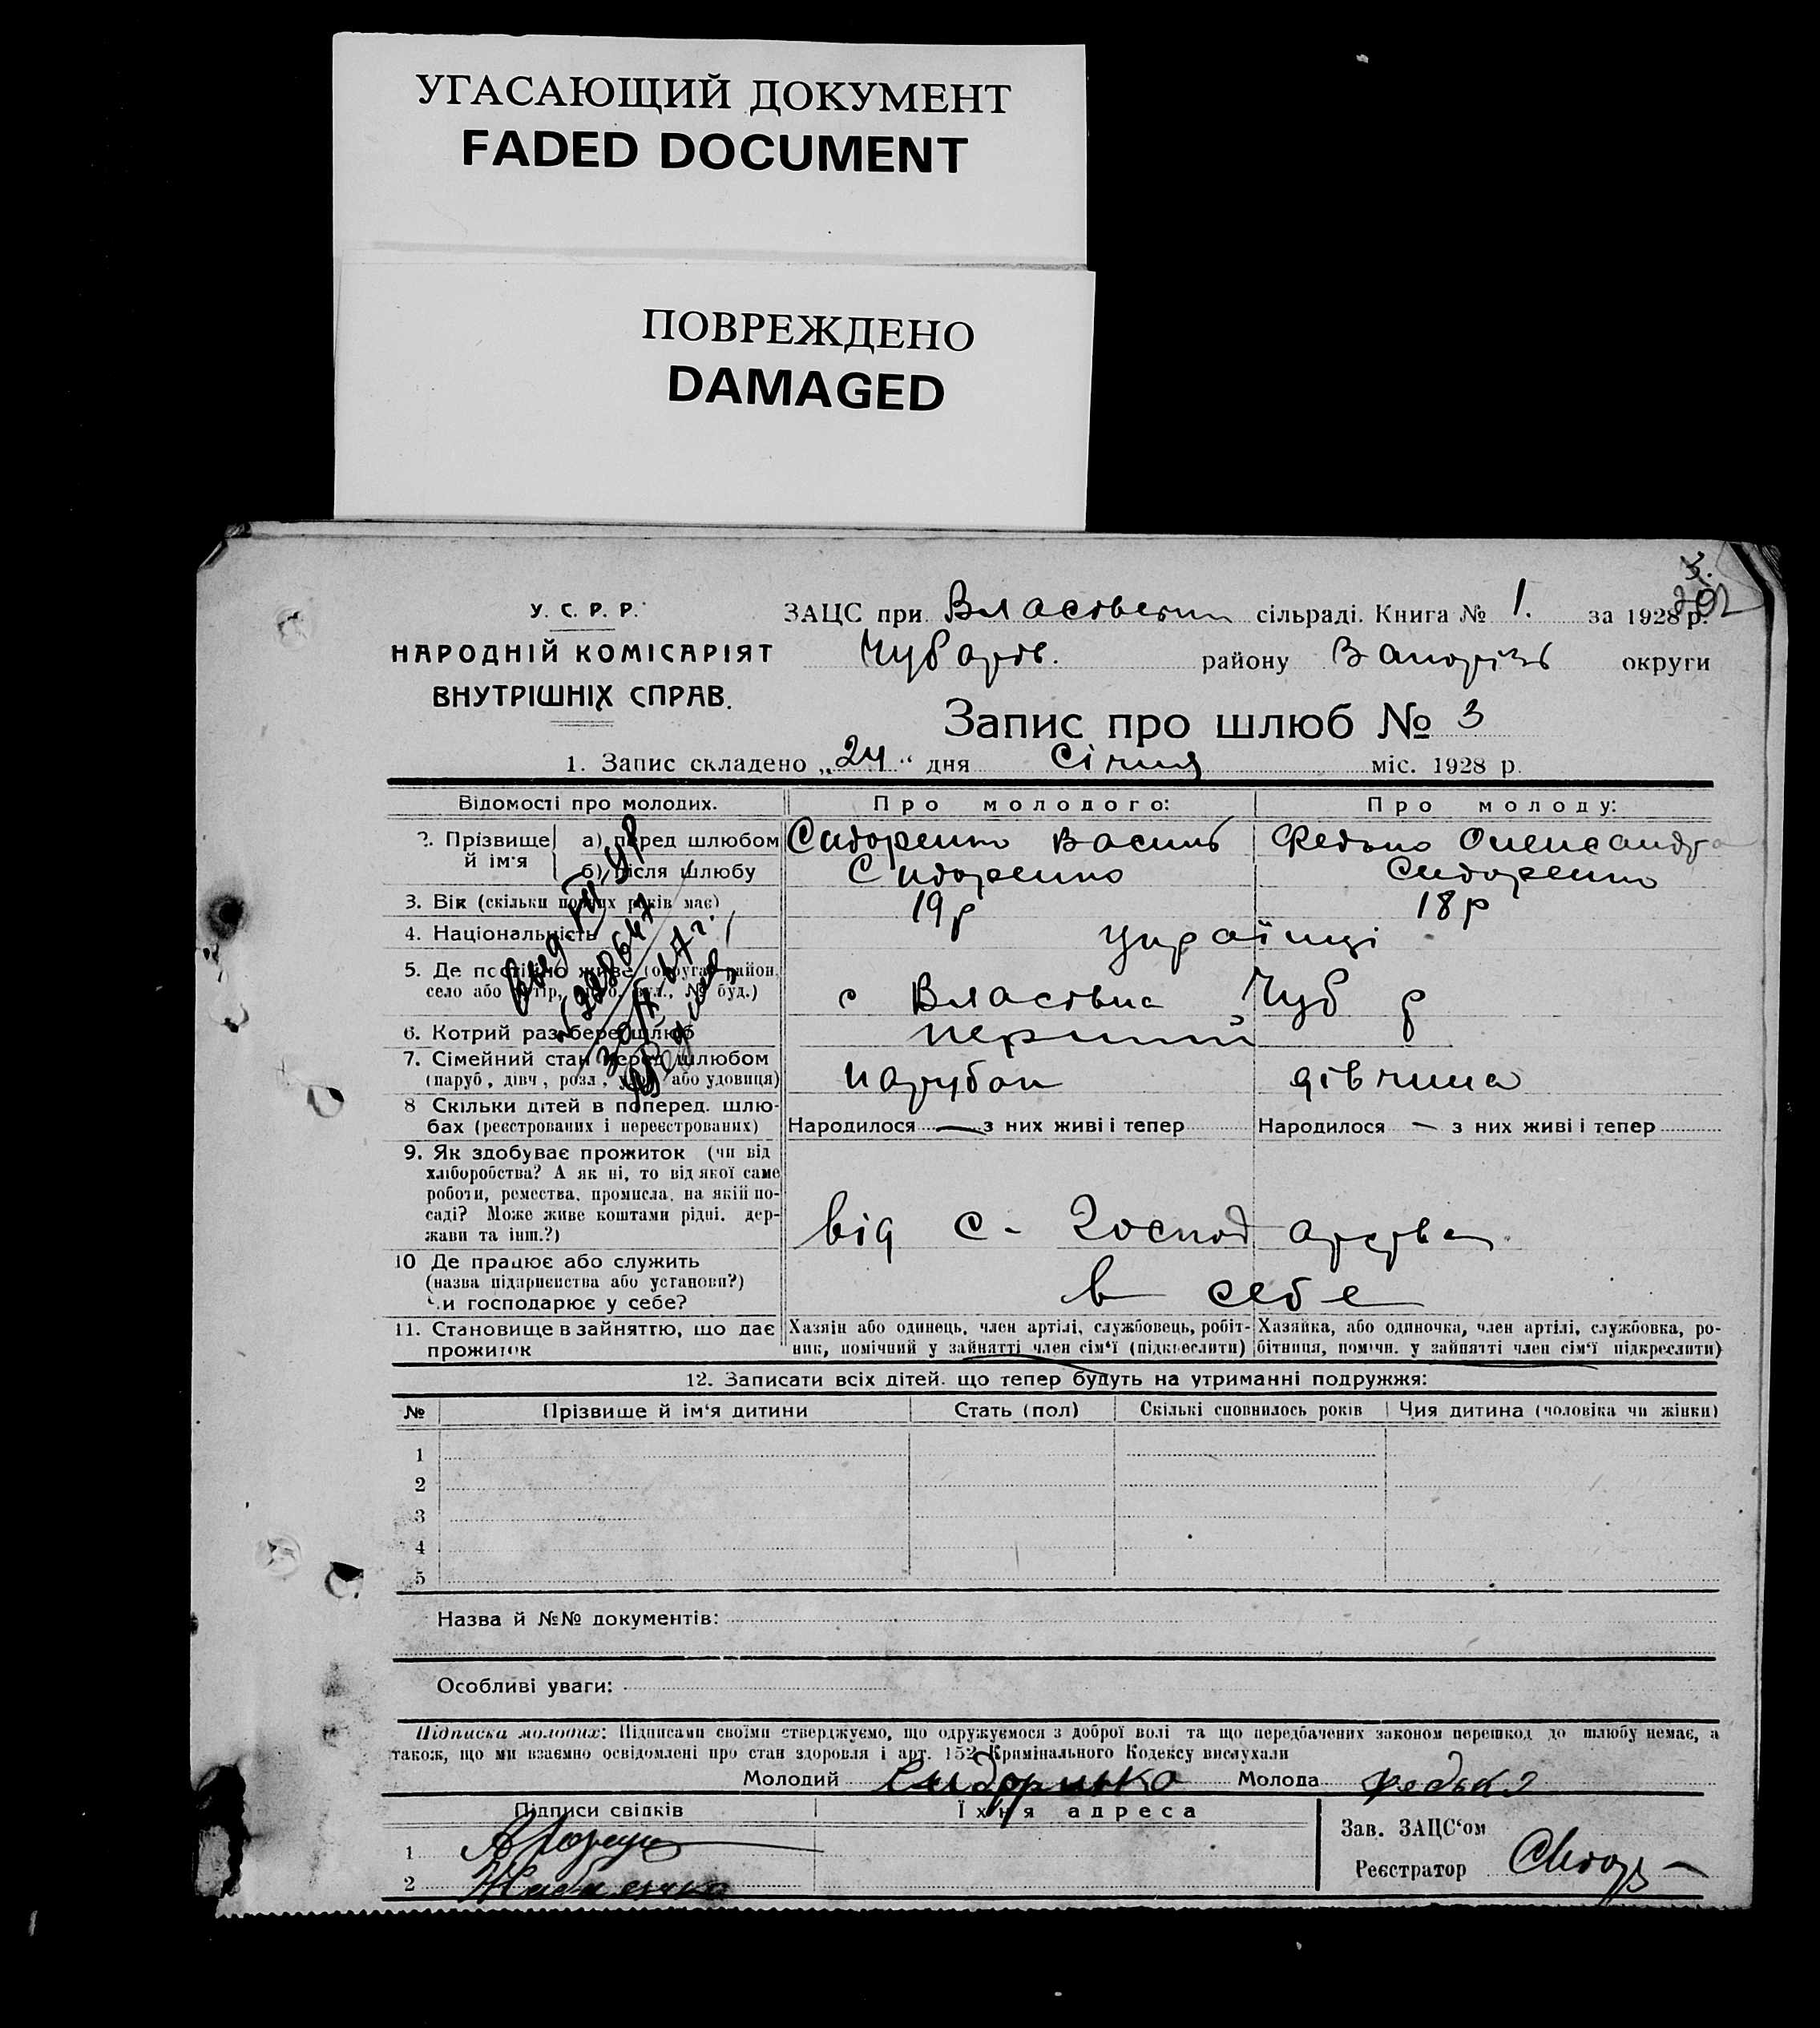 УГАСАЮЩИЙ ДОКУМЕНТ
FADED DOCUMENT
ПОВРЕЖДЕНО
DAMAGED
3.
У. С. Р. Р.
НАРОДНІЙ КОМІСАРІЯТ
ВНУТРІШНІХ СПРАВ.
ЗАЦС при сільраді. Книга № 1. за 1928 р.
Чубарів. району Запорізь округи
Запис про шлюб № 3
1. Запис складено „24" дня Січня міс. 1928 р.
Відомості про молодих. Про молодого: Про молоду:
2. Прізвище й ім'я
а) перед шлюбом Сидоренко Василь Федько Олександра
б) після шлюбу Сидоренко Сидоренко
3. Вік (скільки повних років має) 19 р 18 р
4. Національність українці
5. Де постійно живе (округа, район,
село або хутір, місто, вул., № буд.) с Властівка Чуб р
6. Котрий раз бере шлюб перший
7. Сімейний стан перед шлюбом
(паруб, дівч, розл, уд. або удовиця) парубок дівчина
8 Скільки дітей в поперед. шлю-
бах (реєстрованих і нереєстрованих) Народилося — з них живі і тепер Народилося — з них живі і тепер
9. Як здобуває прожиток (чи від
хліборобства? А як ні, то від якої саме
роботи, ремества, промисла, на якій по-
саді? Може живе коштами рідні, дер-
жави та інш.?) від с - господарства
10 Де працює або служить
(назва підприємства або установи?)
Чи господарює у себе? в себе
11. Становище в зайняттю, що дає
прожиток
Хазяїн або одинець, член артілі, службовець, робіт-
ник, помічний у зайнятті член сім'ї (підкреслити)
Хазяйка, або одиночка, член артілі, службовка, ро-
бітниця, помічн. у зайнятті член сім'ї підкреслити)
12. Записати всіх дітей, що тепер будуть на утриманні подружжя:
№ Прізвище й ім'я дитини Стать (пол) Скількі сповнилось років Чия дитина (чоловіка чи жінки)
1
2
3
4
5
Назва й №№ документів:
Особливі уваги:
Підписка молодих: Підписами своїми стверджуємо, що одружуємося з доброї волі та що передбачених законом перешкод до шлюбу немає, а
також, що ми взаємно освідомлені про стан здоровля і арт. 152 Кримінального Кодексу вислухали
Молодий Сидоринько Молода Федько
Підписи свідків Їхня адреса
1
2
Зав. ЗАЦС'ом
Реєстратор